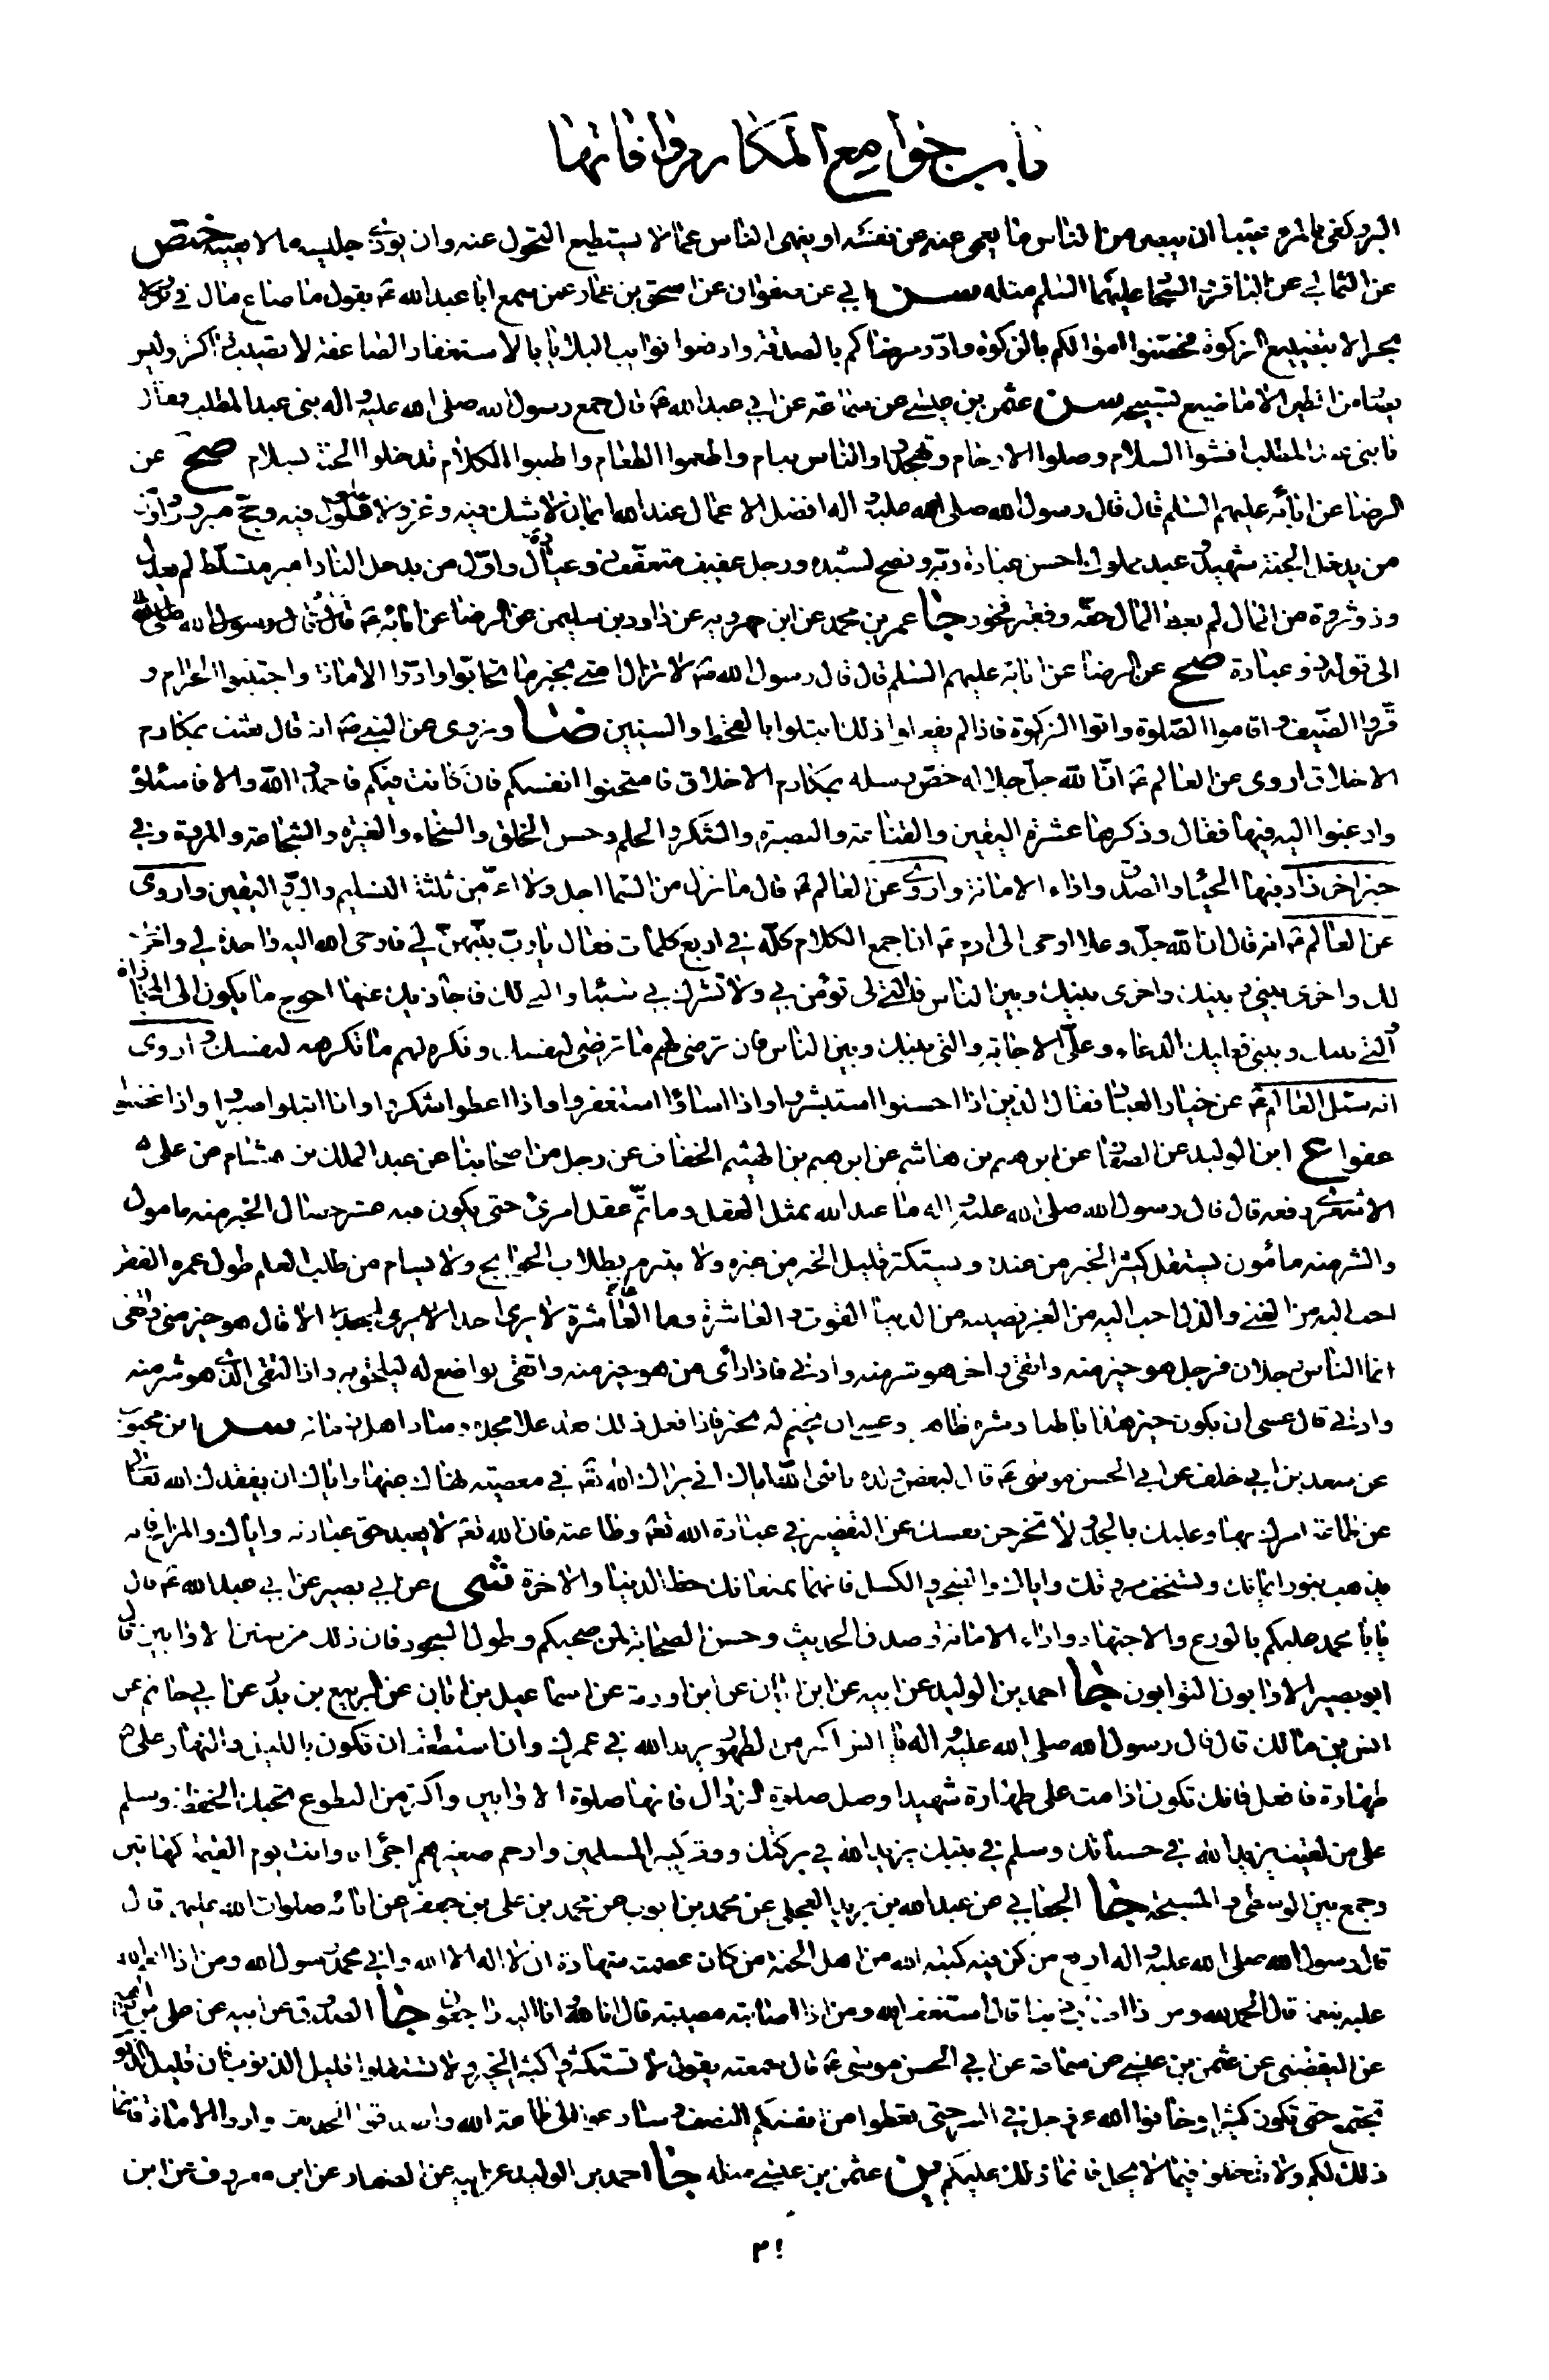 باب جوامع المكارم وافاتها
البر وكفى بالمرء عيبا ان يبصر من الناس ما يعمى عنه من نفسه او ينهى الناس عما لا يستطيع التحول عنه وان يوذى جليسه بما لا يعنيه ختص
عن الثمالي عن الباقر والسجاد عليهما السلم مثله سن ابي عن صفوان عن اسحق بن عمار عمن سمع ابا عبد الله ع يقول ما ضاع مال في بر ولا
بحر الا بتضييع الزكوة فحصنوا اموالكم بالزكوة وداووا مرضاكم بالصدقة وادفعوا نوايب البلايا بالاستغفار الصاعقة لا تصيب ذاكرا وليس
يصاد من الطير الا ما ضيع تسبيحه سن عثمن بن عيسى عن سماعة عن ابي عبد الله ع قال جمع رسول الله صلى الله عليه واله بنى عبد المطلب فقال
يا بنى عبد المطلب افشوا السلام وصلوا الارحام وتهجدوا والناس نيام واطعموا الطعام واطيبوا الكلام تدخلوا الجنة بسلام صح عن
الرضا عن ابائه عليهم السلم قال قال رسول الله صلى الله عليه واله افضل الاعمال عند الله ايمان لا شك فيه وغزو لا غلول فيه وحج مبرور واول
من يدخل الجنة شهيد وعبد مملوك احسن عبادة ربه ونصح لسيده ورجل عفيف متعفف ذو عيال واول من يدخل النار امير متسلط لم يعدل
وذو ثروة من المال لم يعط المال حقه وفقير فخور جا عمر بن محمد عن ابن مهرويه عن داود بن سليمن عن الرضا عن ابائه ع قال قال رسول الله صلى الله
الى قوله ذو عبادة صح عن الرضا عن ابائه عليهم السلم قال قال رسول الله ص لا تزال امتي بخير ما تحابوا وادوا الامانة واجتنبوا الحرام و
قروا الضيف واقاموا الصلوة واتوا الزكوة فاذا لم يفعلوا ذلك ابتلوا بالقحط والسنين ضا ونروى عن النبي ص انه قال بعثت بمكارم
الاخلاق اروى عن العالم ع ان الله جل جلاله خص رسله بمكارم الاخلاق فامتحنوا انفسكم فان كانت فيكم فاحمدوا الله والا فاسئلوه
وارغبوا اليه فيها فقال وذكرها عشرة اليقين والقناعة والبصيرة والشكر والحلم وحسن الخلق والسخاء والغيرة والشجاعة والمروة وفي
خبر اخر زاد فيها الحياء والصدق واداء الامانة واروى عن العالم ع قال ما نزل من السماء اجل ولا اعز من ثلثة التسليم والبر واليقين واروى
عن العالم ع انه قال ان الله جل وعلا اوحى الى ادم ع ان اجمع الكلام كله في اربع كلمات فقال يا رب بينهن لي فاوحى الله اليه واحدة لي واخرى
لك واخرى بيني وبينك واخرى بينك وبين الناس فالتي لي تؤمن بي ولا تشرك بي شيئا والتي لك فاجازيك عنها احوج ما تكون الى المجازاة
والتي بينك وبيني فعليك الدعاء وعلي الاجابة والتي بينك وبين الناس فان ترضى لهم ما ترضى لنفسك وتكره لهم ما تكره لنفسك واروى
انه سئل العالم ع عن خيار العباد فقال الذين اذا احسنوا استبشروا واذا اساؤا استغفروا واذا اعطوا شكروا واذا ابتلوا صبروا واذا غضبوا
عفوا ع ابن الوليد عن الصفار عن ابرهيم بن هاشم عن ابرهيم بن الهيثم الخفاف عن رجل من اصحابنا عن عبد الملك بن هشام عن علي
الاشعري رفعه قال قال رسول الله صلى الله عليه واله ما عبد الله بمثل العقل وما تم عقل امرئ حتى يكون فيه عشر خصال الخير منه مامول
والشر منه مأمون يستقل كثير الخير من عنده ويستكثر قليل الخير من غيره ولا يتبرم بطلاب الحوايج ولا يسام من طلب العلم طول عمره الفقر
احب اليه من الغنى والذل احب اليه من العز نصيبه من الدنيا القوت والعاشرة وما العاشرة لا يرى احدا الا قال هو خير منى واتقى
انما الناس رجلان فرجل هو خير منه واتقى واخر هو شر منه وادنى فاذا راى من هو خير منه واتقى تواضع له ليلحق به واذا التقى الذي هو شر منه
وادنى قال عسى ان يكون خير هذا باطنا وشره ظاهر وعسى ان يختم له بخير فاذا فعل ذلك فقد علا مجده وساد اهل زمانه سر ابن محبوب
عن سعد بن ابي خلف عن ابي الحسن موسى ع قال لبعض ولده يا بني اياك ان يراك الله تع في معصية نهاك عنها واياك ان يفقدك الله تعالى
عن طاعة امرك بها وعليك بالجد ولا تخرجن نفسك عن التقصير في عبادة الله تع وطاعته فان الله تع لا يعبد حق عبادته واياك والمزاح فانه
يذهب بنور ايمانك ويستخف مروتك واياك والضجر والكسل فانهما يمنعانك حظ الدنيا والاخرة شى عن ابي بصير عن ابي عبد الله ع قال
يا با محمد عليكم بالورع والاجتهاد واداء الامانة وصدق الحديث وحسن الصحابة لمن صحبكم وطول السجود فان ذلك من سنن الاوابين قال
ابو بصير الاوابون التوابون جا احمد بن الوليد عن ابيه عن ابن ابان عن ابن اورمة عن اسماعيل بن ابان عن الربيع بن بدر عن ابي حاتم عن
انس بن مالك قال قال رسول الله صلى الله عليه واله يا انس اكثر من الطهور يزيد الله في عمرك وان استطعت ان تكون بالليل والنهار على
طهارة فافعل فانك تكون اذا مت على طهارة شهيدا وصل صلوة الزوال فانها صلوة الاوابين واكثر من التطوع تحبك الحفظة وسلم
على من لقيت يزيد الله في حسناتك وسلم في بيتك يزيد الله في بركتك ووقر كبير المسلمين وارحم صغيرهم اجئ انا وانت يوم القيمة كهاتين
وجمع بين الوسطى والمسبحة جا الجعابي عن عبد الله بن بريد العجلي عن محمد بن ايوب عن محمد بن علي بن جعفر عن ابائه صلوات الله عليهم قال
قال رسول الله صلى الله عليه واله اربع من كن فيه كتبه الله من اهل الجنة من كان عصمته شهادة ان لا اله الا الله واني محمد رسول الله ومن اذا انعم الله
عليه بنعمة قال الحمد لله ومن اذا اذنب ذنبا قال استغفر الله ومن اذا اصابته مصيبة قال انا لله وانا اليه راجعون جا الصدوق عن ابيه عن علي بن ابرهيم
عن اليقطيني عن عثمن بن عيسى عن سماعة عن ابي الحسن موسى ع قال سمعته يقول لا تستكثروا كثير الخير ولا تستقلوا قليل الذنوب فان قليل الذنوب
تجتمع حتى تكون كثيرا وخافوا الله عز وجل في السر حتى تعطوا من انفسكم النصف وسارعوا الى طاعة الله واصدقوا الحديث وادوا الامانة فانما
ذلك لكم ولا تدخلوا فيما لا يحل فانما ذلك عليكم ين عثمن بن عيسى مثله جا احمد بن الوليد عن ابيه عن الصفار عن ابن معروف عن ابن
٢١